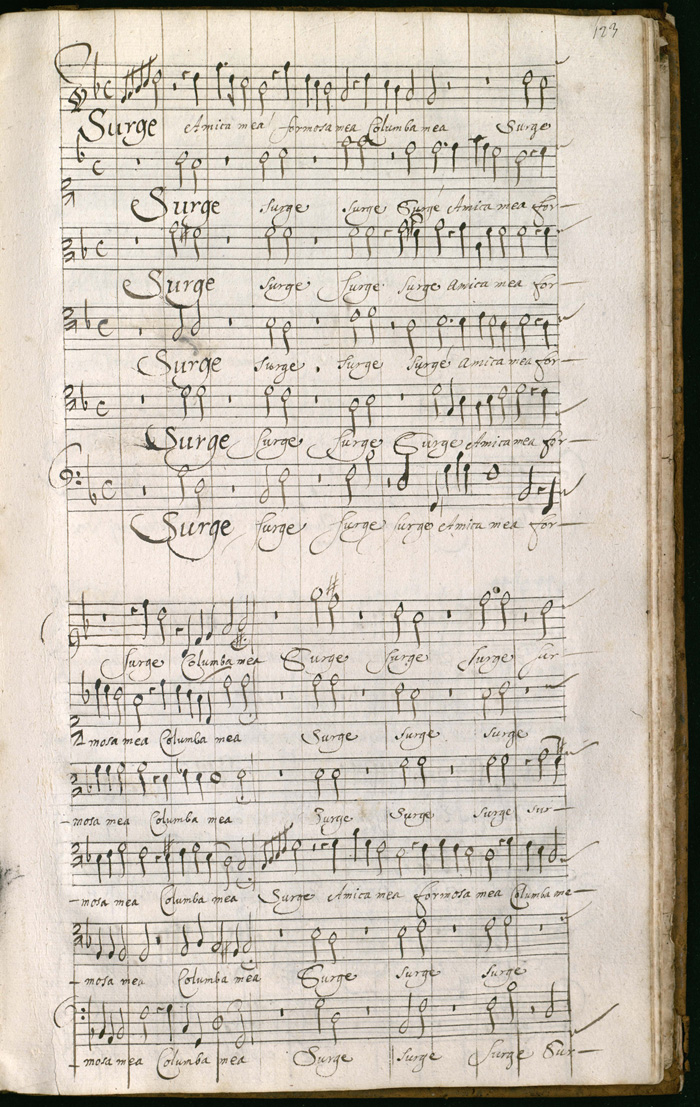 123
Surge Amica mea formosa mea Columba mea Surge
Surge surge surge Surge Amica mea for-
Surge surge surge surge Amica mea for-
Surge surge surge surge Amica mea for-
Surge surge surge Surge Amica mea for-
Surge surge surge surge Amica mea for-
Surge Columba mea Surge surge surge sur-
mosa mea Columba mea Surge surge surge
-mosa mea Columba mea Surge Surge surge sur-
-mosa mea Columba mea Surge Amica mea formosa mea Columba me-
-mosa mea Columba mea Surge surge surge
-mosa mea Columba mea Surge surge surge Sur-